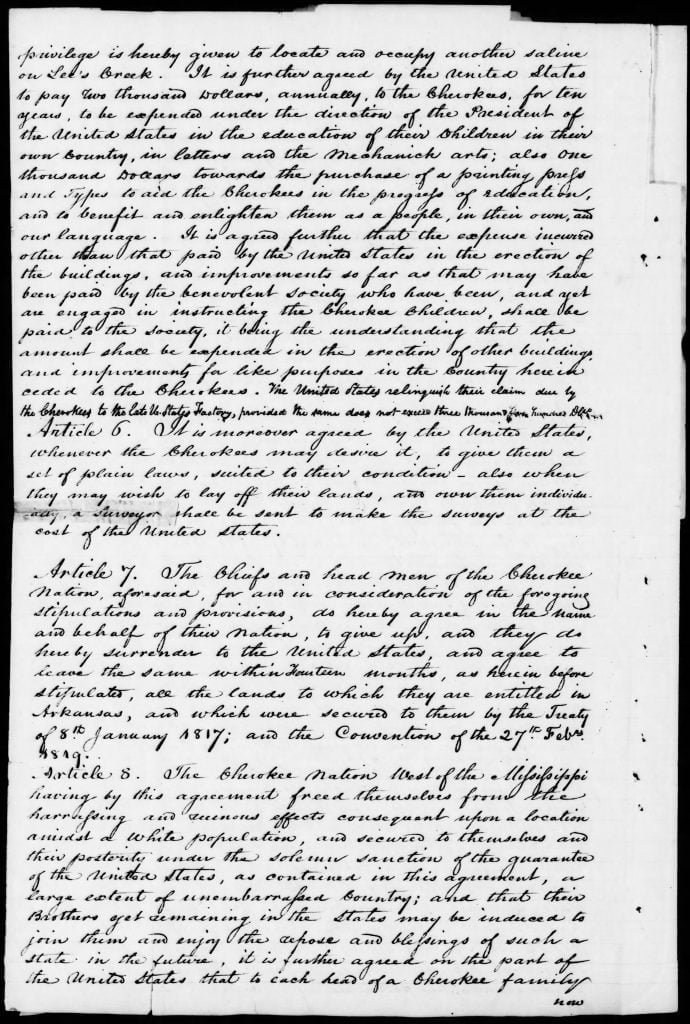 privilege is hereby given to locate and occupy another saline
on Lee's Creek. It is further agreed by the United States
to pay Two thousand Dollars, annually, to the Cherokees, for ten
years, to be expended under the direction of the President of
the United States in the education of their Children in their
own Country, in letters and the Mechanick arts; also One
thousand Dollars towards the purchase of a printing press
and Types to aid the Cherokees in the progress of education,
and to benefit and enlighten them as a people, in their own, and
our language. It is agreed further that the expense incurred
other than that paid by the United States in the erection of
the buildings, and improvements so far as that may have
been paid by the benevolent society who have been, and yet
are engaged in instructing the Cherokee Children, shall be
paid to the society, it being the understanding that the
amount shall be expended in the erection of other buildings
and improvements, for like purposes in the Country herein
ceded to the Cherokees. The United States relinquish their claim due by
the Cherokees to the late U. States Factory, provided the same does not exceed three thousand five hundred Dollars.
Article 6. It is moreover agreed by the United States,
whenever the Cherokees may desire it, to give them a
set of plain laws, suited to their condition - also when
they may wish to lay off their lands, and own them individu-
ally, a surveyor shall be sent to make the surveys at the
cost of the United States.
Article 7. The Chiefs and head men of the Cherokee
Nation, aforesaid, for and in consideration of the foregoing
stipulations and provisions, do hereby agree in the name
and behalf of their Nation, to give up, and they do
hereby surrender to the United States, and agree to
leave the same within Fourteen months, as herein before
stipulated, all the lands to which they are entitled in
Arkansas, and which were secured to them by the Treaty
of 8th January 1817; and the Convention of the 27th Febry.
1819.
Article 8. The Cherokee Nation West of the Mississippi
having by this agreement freed themselves from the
harrassing and ruinous effects consequent upon a location
amidst a White population, and secured to themselves and
their posterity under the solemn sanction of the guarantee
of the United States, as contained in this agreement, a
large extent of unembarrassed Country; and that their
Brothers yet remaining in the States may be induced to
join them and enjoy the repose and blessings of such a
state in the future, it is further agreed on the part of
the United States that to each head of a Cherokee family
now